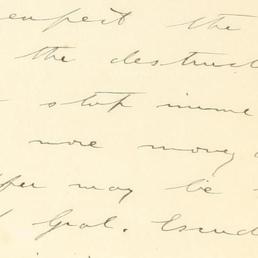 expect the
the destruct
stop imme
more money
may be
Gral. Escud